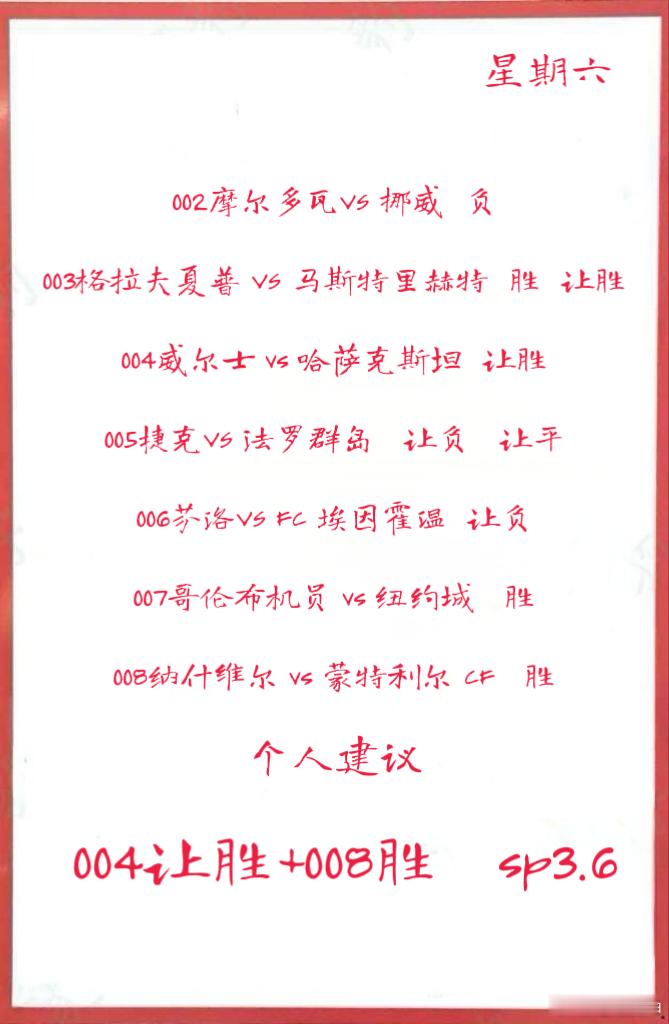 星期六
002摩尔多瓦vs挪威 负
003格拉夫夏普 vs 马斯特里赫特 胜 让胜
004威尔士 vs 哈萨克斯坦 让胜
005捷克vs 法罗群岛 让负 让平
006芬洛vs FC 埃因霍温 让负
007哥伦布机员 vs 纽约城 胜
008纳什维尔 vs 蒙特利尔 CF 胜
个人建议
004让胜+008胜 sp3.6